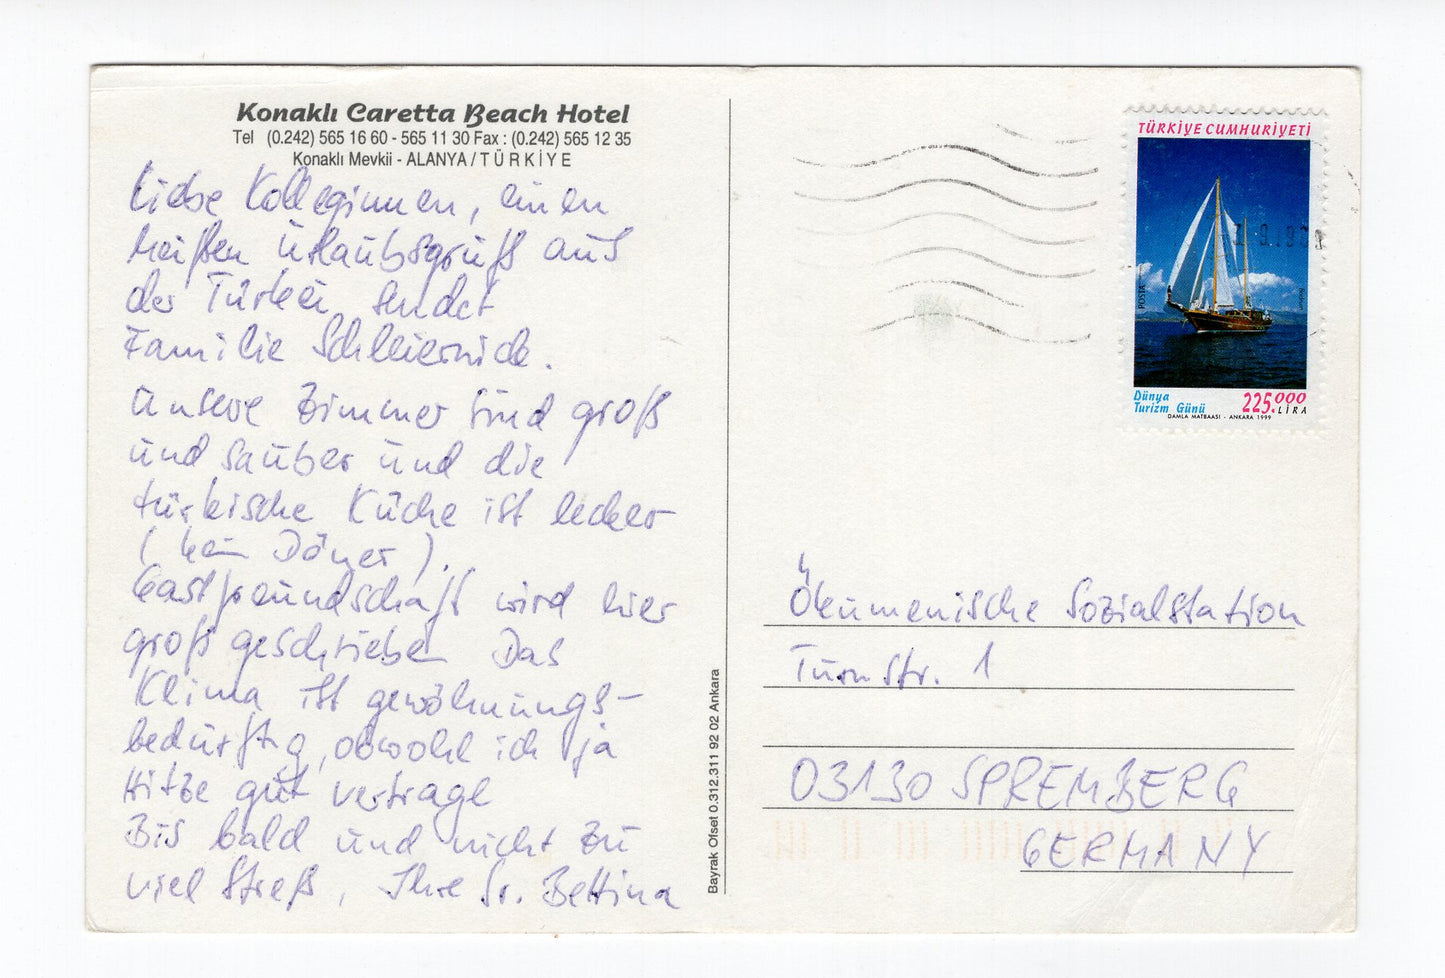 Konaklı Caretta Beach Hotel
Tel (0.242) 565 16 60 - 565 11 30 Fax : (0.242) 565 12 35
Konaklı Mevkii - ALANYA / TÜRKİYE
Liebe Kolleginnen, einen
heißen Urlaubsgruß aus
der Türkei sendet
Familie
Unsere Zimmer sind groß
und sauber und die
türkische Küche ist lecker
(kein Döner).
Gastfreundschaft wird hier
groß geschrieben Das
Klima ist gewöhnungs-
bedürftig, obwohl ich ja
Hitze gut vertrage
Bis bald und nicht zu
viel Streß, Ihre Sr. Bettina
Bayrak Ofset 0.312.311 92 02 Ankara
TÜRKİYE CUMHURİYETİ
POSTA
Dünya
Turizm Günü
225.000
LİRA
DAMLA MATBAASI - ANKARA 1999
Ökumenische Sozialstation
Turnstr. 1
03130 SPREMBERG
GERMANY